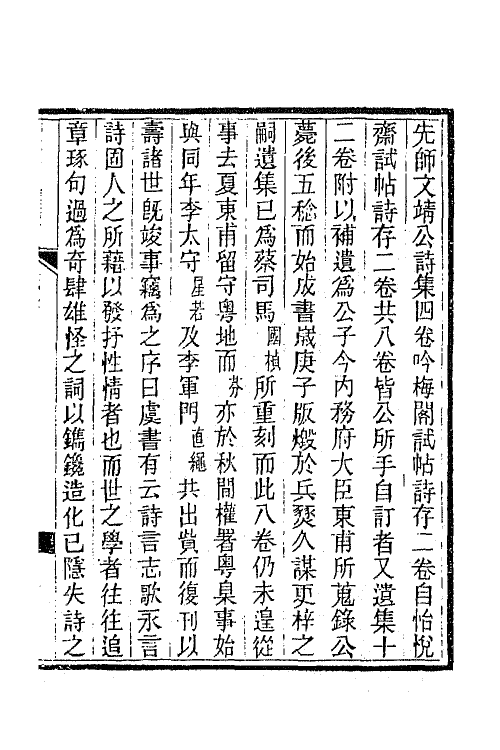 先師文靖公詩集四卷吟梅閣試帖詩存二卷自怡悅
齋試帖詩存二卷共八卷皆公所手自訂者又遺集十
二卷附以補遺爲公子今內務府大臣東甫所蒐錄公
薨後五稔而始成書歲庚子版燬於兵燹久謀更梓之
嗣遺集已爲蔡司馬國楨所重刻而此八卷仍未遑從
事去夏東甫留守粵地而芬亦於秋間權署粵臬事始
與同年李太守星若及李軍門直繩共出貲而復刊以
壽諸世既竣事竊爲之序曰虞書有云詩言志歌永言
詩固人之所藉以發抒性情者也而世之學者往往追
章琢句過爲奇肆雄怪之詞以鐫鑱造化已隱失詩之